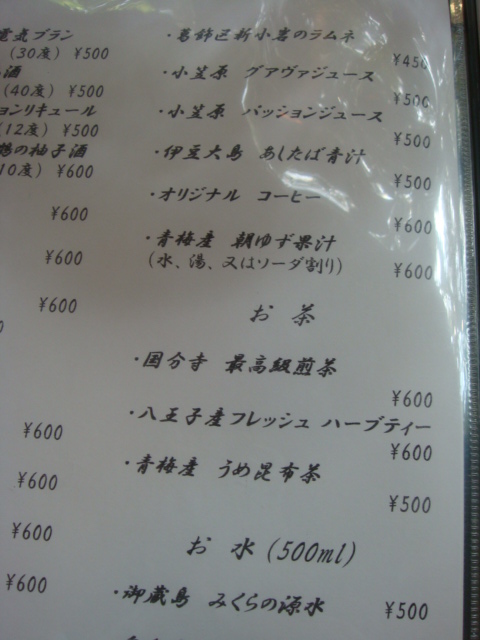 電気ブラン
(30度) ¥500
酒
(40度) ¥500
ョンリキュール
(12度) ¥500
の柚子酒
10度) ¥600
¥600
¥600
¥600
¥600
¥600
¥600
¥600
・葛飾区新小岩のラムネ
¥450
・小笠原 グアヴァジュース
¥500
・小笠原 パッションジュース
¥500
・伊豆大島 あしたば青汁
¥500
・オリジナル コーヒー
¥600
・青梅産 朝ゆず果汁
(水、湯、又はソーダ割り) ¥600
お 茶
・国分寺 最高級煎茶
¥600
・八王子産フレッシュ ハーブティー
¥600
・青梅産 うめ昆布茶
¥500
お 水 (500ml)
・御蔵島 みくらの源水 ¥500